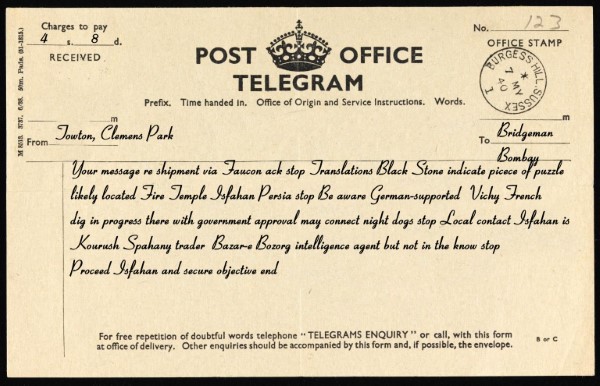 Charges to pay
4 s. 8 d.
RECEIVED
POST OFFICE
TELEGRAM
No. 123
OFFICE STAMP
BURGESS HILL SUSSEX
* 7 MY 40 1
Prefix. Time handed in. Office of Origin and Service Instructions. Words.
m
m
From Towton, Clemens Park
To Bridgeman
Bombay
Your message re shipment via Faucon ack stop Translations Black Stone indicate picece of puzzle
likely located Fire Temple Isfahan Persia stop Be aware German-supported Vichy French
dig in progress there with government approval may connect night dogs stop Local contact Isfahan is
Kourush Spahany trader Bazar-e Bozorg intelligence agent but not in the know stop
Proceed Isfahan and secure objective end
For free repetition of doubtful words telephone "TELEGRAMS ENQUIRY" or call, with this form
at office of delivery. Other enquiries should be accompanied by this form and, if possible, the envelope.
B or C